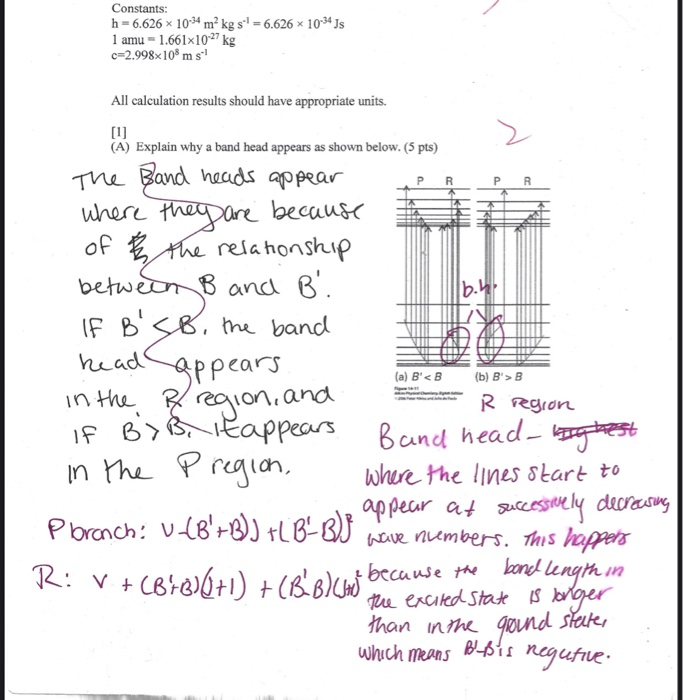 Constants:
h = 6.626 × 10⁻³⁴ m² kg s⁻¹ = 6.626 × 10⁻³⁴ Js
1 amu = 1.661×10⁻²⁷ kg
c=2.998×10⁸ m s⁻¹
All calculation results should have appropriate units.
2
[1]
(A) Explain why a band head appears as shown below. (5 pts)
The Band heads appear
where they are because
of the relationship
between B and B'.
IF B' < B, the band
head appears
in the R region, and
IF B > B, it appears
in the P region.
P R P R
b.h.
(a) B' < B (b) B' > B
R region
Band head -
where the lines start to
appear at successively decreasing
wave numbers. This happens
because the bond length in
the excited state is longer
than in the ground state,
which means B'-B is negative.
P branch: ν-(B'+B)J+(B'-B)J²
R: ν + (B'+B)(J+1) + (B'-B)(J+1)²